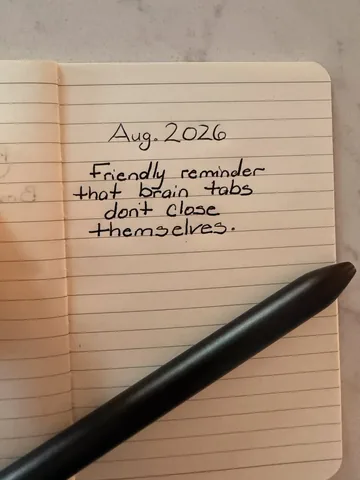 Aug. 2026
Friendly reminder
that brain tabs
don't close
themselves.